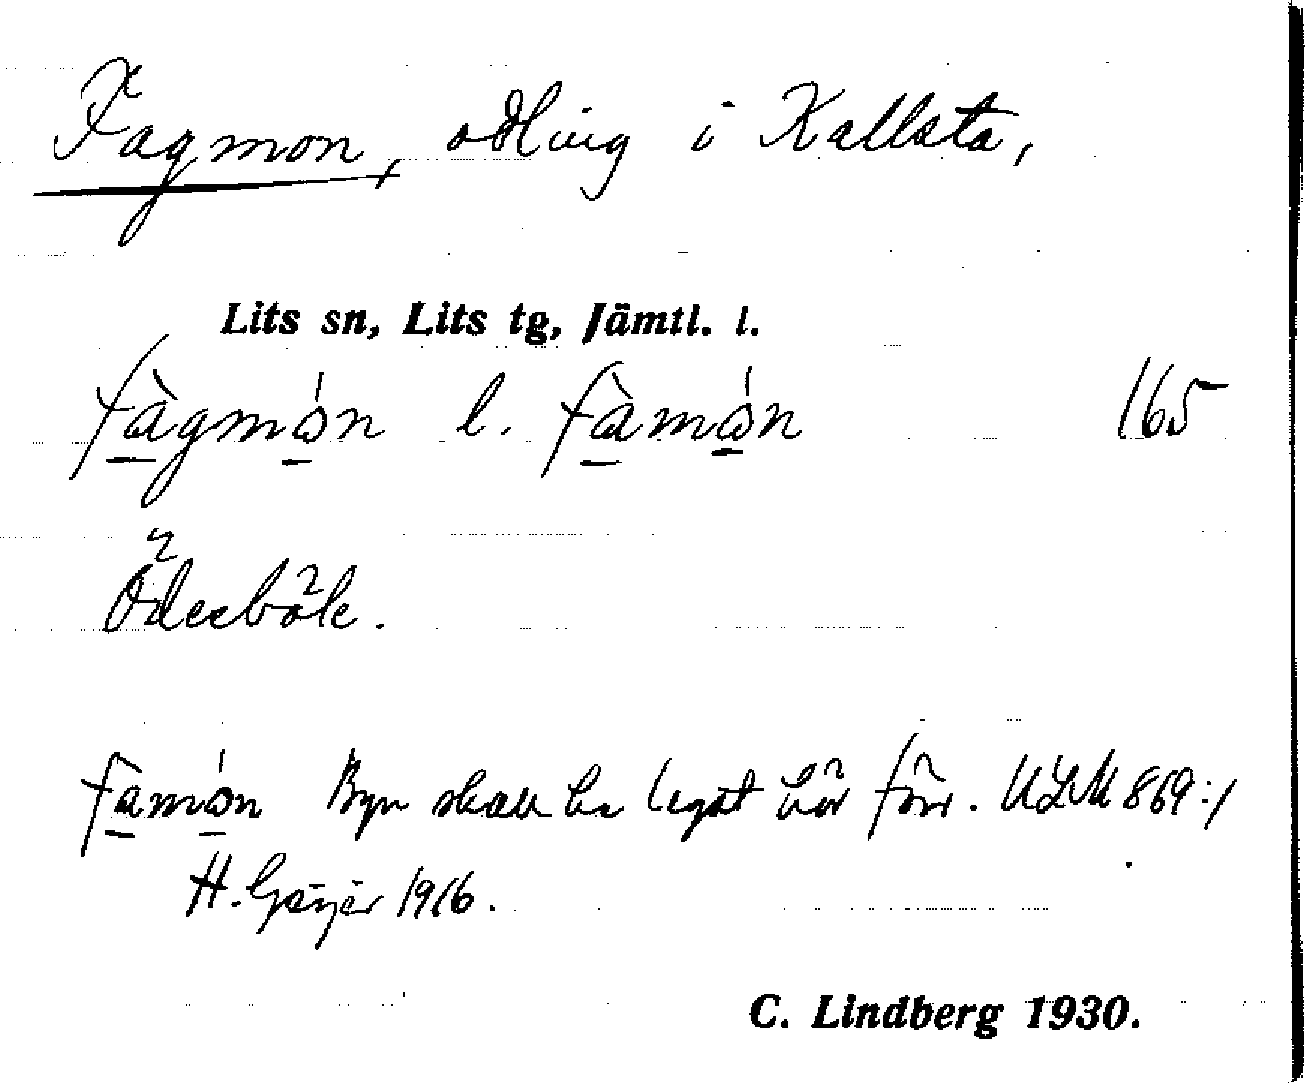 Fagmon, odling i Kallsta,
Lits sn, Lits tg, Jämtl. l.
fàgmón l. fàmón 165
Ödesböle.
fàmón Byn skall ha legat här förr. ULMA 859:1
H. Geijer 1916.
C. Lindberg 1930.